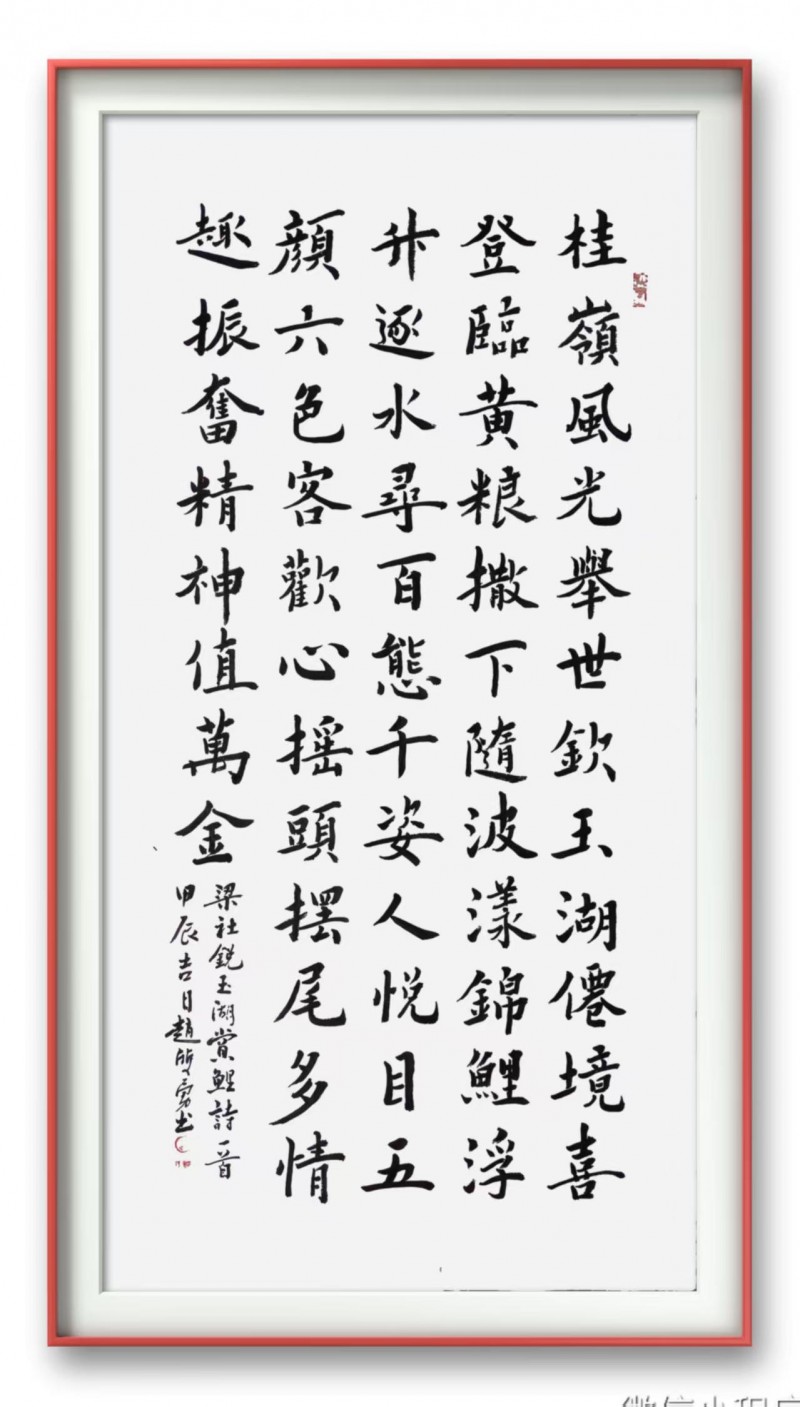 桂嶺風光舉世欽玉湖僊境喜
登臨黃粮撒下隨波漾錦鯉浮
升逐水尋百態千姿人悅目五
顏六色客歡心摇頭摆尾多情
趣振奮精神值萬金
梁社銑玉湖賞鯉詩一首
甲辰吉日趙